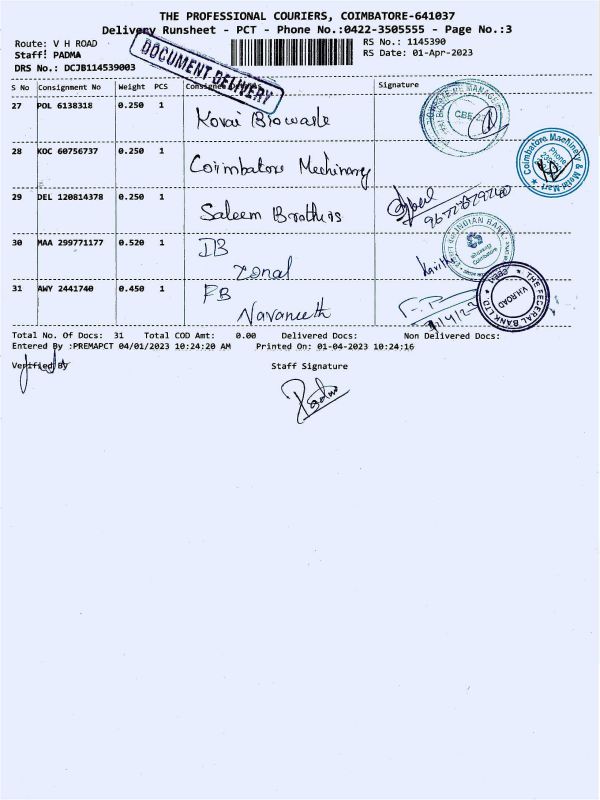 THE PROFESSIONAL COURIERS, COIMBATORE-641037
Delivery Runsheet - PCT - Phone No.:0422-3505555 - Page No.:3
Route: V H ROAD
RS No.: 1145390
Staff: PADMA
RS Date: 01-Apr-2023
DRS No.: DCJB114539003
DOCUMENT DELIVERY
S No Consignment No Weight PCS Consignee Signature
27 POL 6138318 0.250 1 Kovai Biowaste
CBE
28 KOC 60756737 0.250 1 Coimbatore Mechinary
Coimbatore Machinery & Metal Mart
Phone
29 DEL 120814378 0.250 1 Saleem Brothers
30 MAA 299771177 0.520 1 IB Zonal
Kavitha
INDIAN BANK
Coimbatore
31 AWY 2441740 0.450 1 FB Navaneeth
THE FEDERAL BANK LTD.
V.H.ROAD
Total No. Of Docs: 31 Total COD Amt: 0.00 Delivered Docs: Non Delivered Docs:
Entered By :PREMAPCT 04/01/2023 10:24:20 AM Printed On: 01-04-2023 10:24:16
Verified By
Staff Signature
Padma